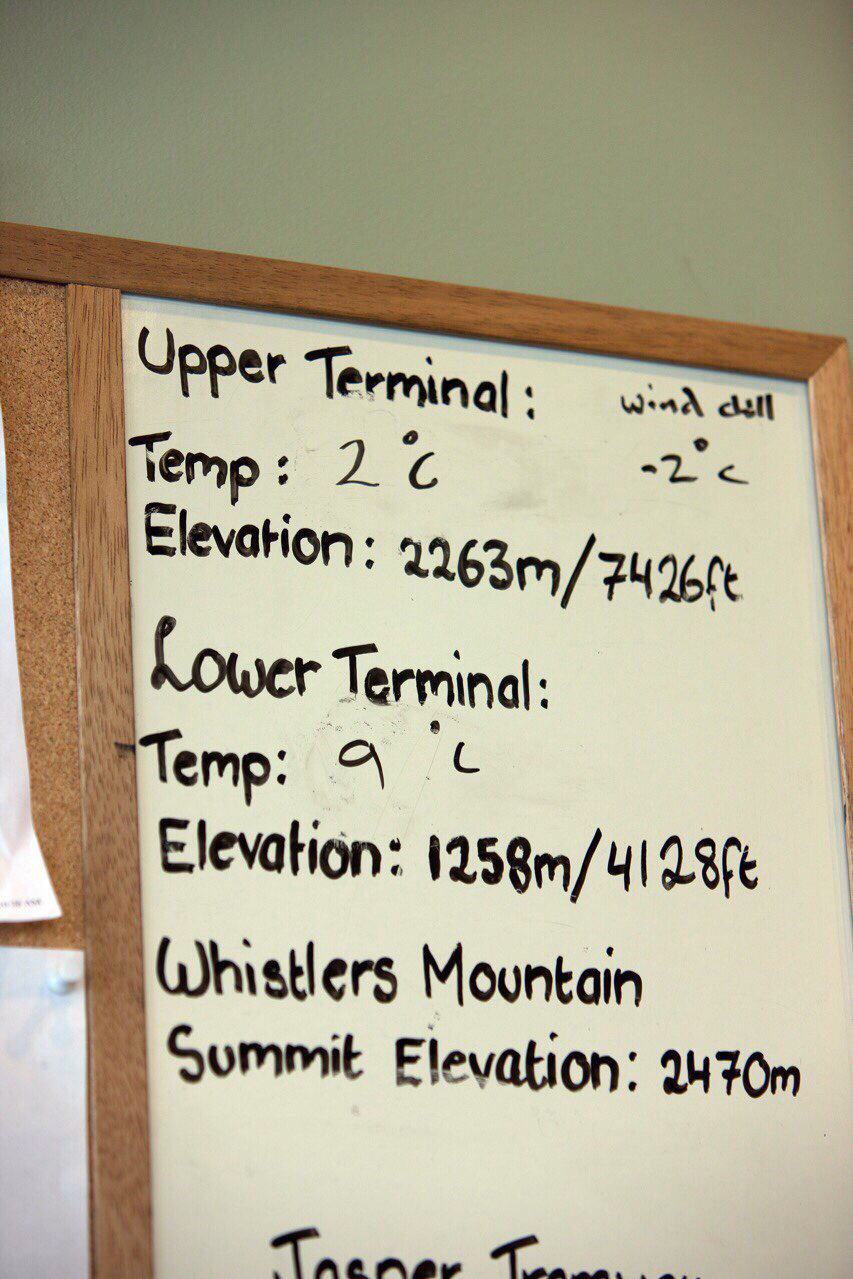 Upper Terminal: wind chill
Temp: 2°C -2°C
Elevation: 2263m/7426ft
Lower Terminal:
Temp: 9°C
Elevation: 1258m/4128ft
Whistlers Mountain
Summit Elevation: 2470m
Jasper Tramway